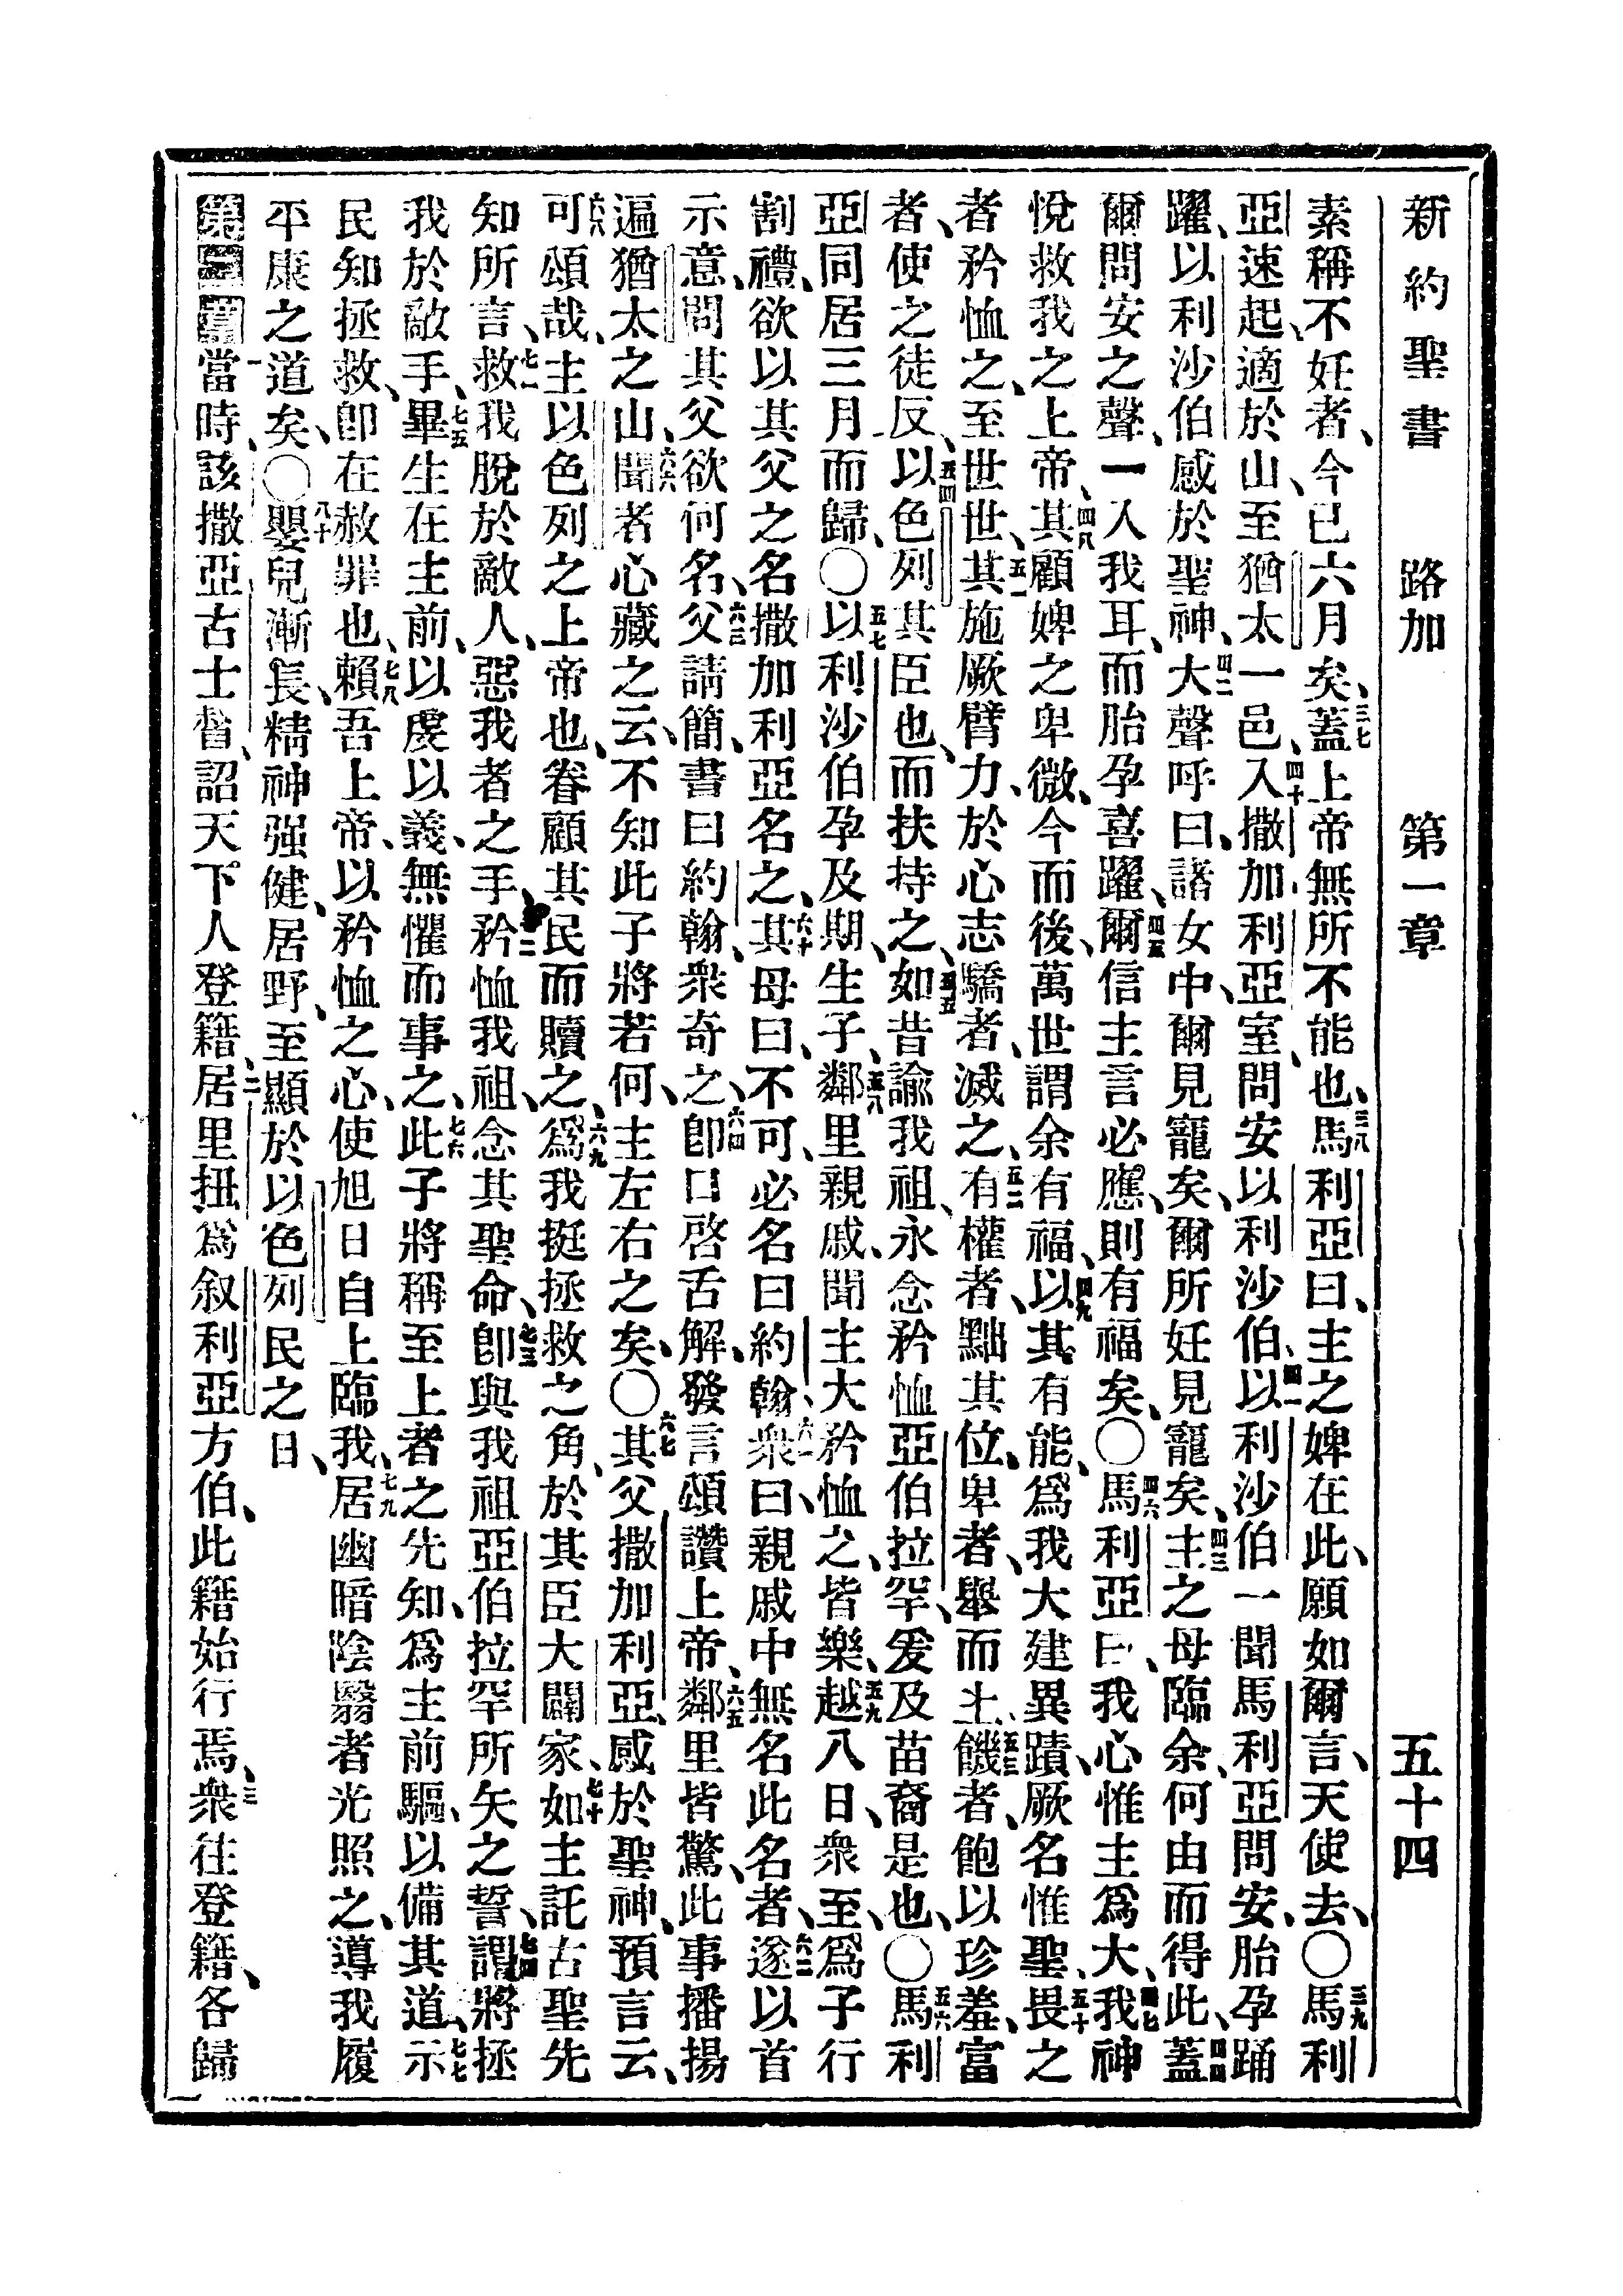 新約聖書 路加 第一章 五十四
素稱不妊者、今已六月矣、三七蓋上帝無所不能也、三八馬利亞曰、主之婢在此、願如爾言、天使去、〇三九馬利
亞速起、適於山、至猶太一邑、四十入撒加利亞室、問安以利沙伯、四一以利沙伯一聞馬利亞問安、胎孕踊
躍、以利沙伯感於聖神、四二大聲呼曰、諸女中、爾見寵矣、爾所妊見寵矣、四三主之母臨余、何由而得此、四四蓋
爾問安之聲、一入我耳、而胎孕喜躍、四五爾信主言必應、則有福矣、〇四六馬利亞曰、我心惟主爲大、四七我神
悅救我之上帝、四八其顧婢之卑微、今而後、萬世謂余有福、四九以其有能、爲我大建異蹟、厥名惟聖、五十畏之
者、矜恤之、至世世、五一其施厥臂力、於心志驕者、滅之、五二有權者、黜其位、卑者、舉而上、五三饑者、飽以珍羞、富
者、使之徒反、五四以色列其臣也、而扶持之、五五如昔諭我祖、永念矜恤亞伯拉罕、爰及苗裔是也、〇五六馬利
亞同居三月而歸、〇五七以利沙伯孕及期、生子、五八鄰里親戚、聞主大矜恤之、皆樂、五九越八日、衆至、爲子行
割禮、欲以其父之名撒加利亞名之、六十其母曰、不可、必名曰約翰、六一衆曰、親戚中無名此名者、六二遂以首
示意、問其父欲何名、六三父請簡、書曰約翰、衆奇之、六四卽口啓舌解、發言頌讚上帝、六五鄰里皆驚、此事播揚
遍猶太之山、六六聞者心藏之、云、不知此子將若何、主左右之矣、〇六七其父撒加利亞、感於聖神、預言云、
六八可頌哉、主以色列之上帝也、眷顧其民而贖之、六九爲我挺拯救之角、於其臣大闢家、七十如主託古聖先
知所言、七一救我脫於敵人、惡我者之手、七二矜恤我祖、念其聖命、七三卽與我祖亞伯拉罕所矢之誓、七四謂將拯
我於敵手、七五畢生在主前、以虔以義、無懼而事之、七六此子將稱至上者之先知、爲主前驅、以備其道、七七示
民知拯救、卽在赦罪也、七八賴吾上帝、以矜恤之心、使旭日自上臨我、七九居幽暗陰翳者光照之、導我履
平康之道矣、〇八十嬰兒漸長、精神强健、居野、至顯於以色列民之日、
第二章 一當時、該撒亞古士督、詔天下人登籍、二居里扭爲叙利亞方伯、此籍始行焉、三衆往登籍、各歸